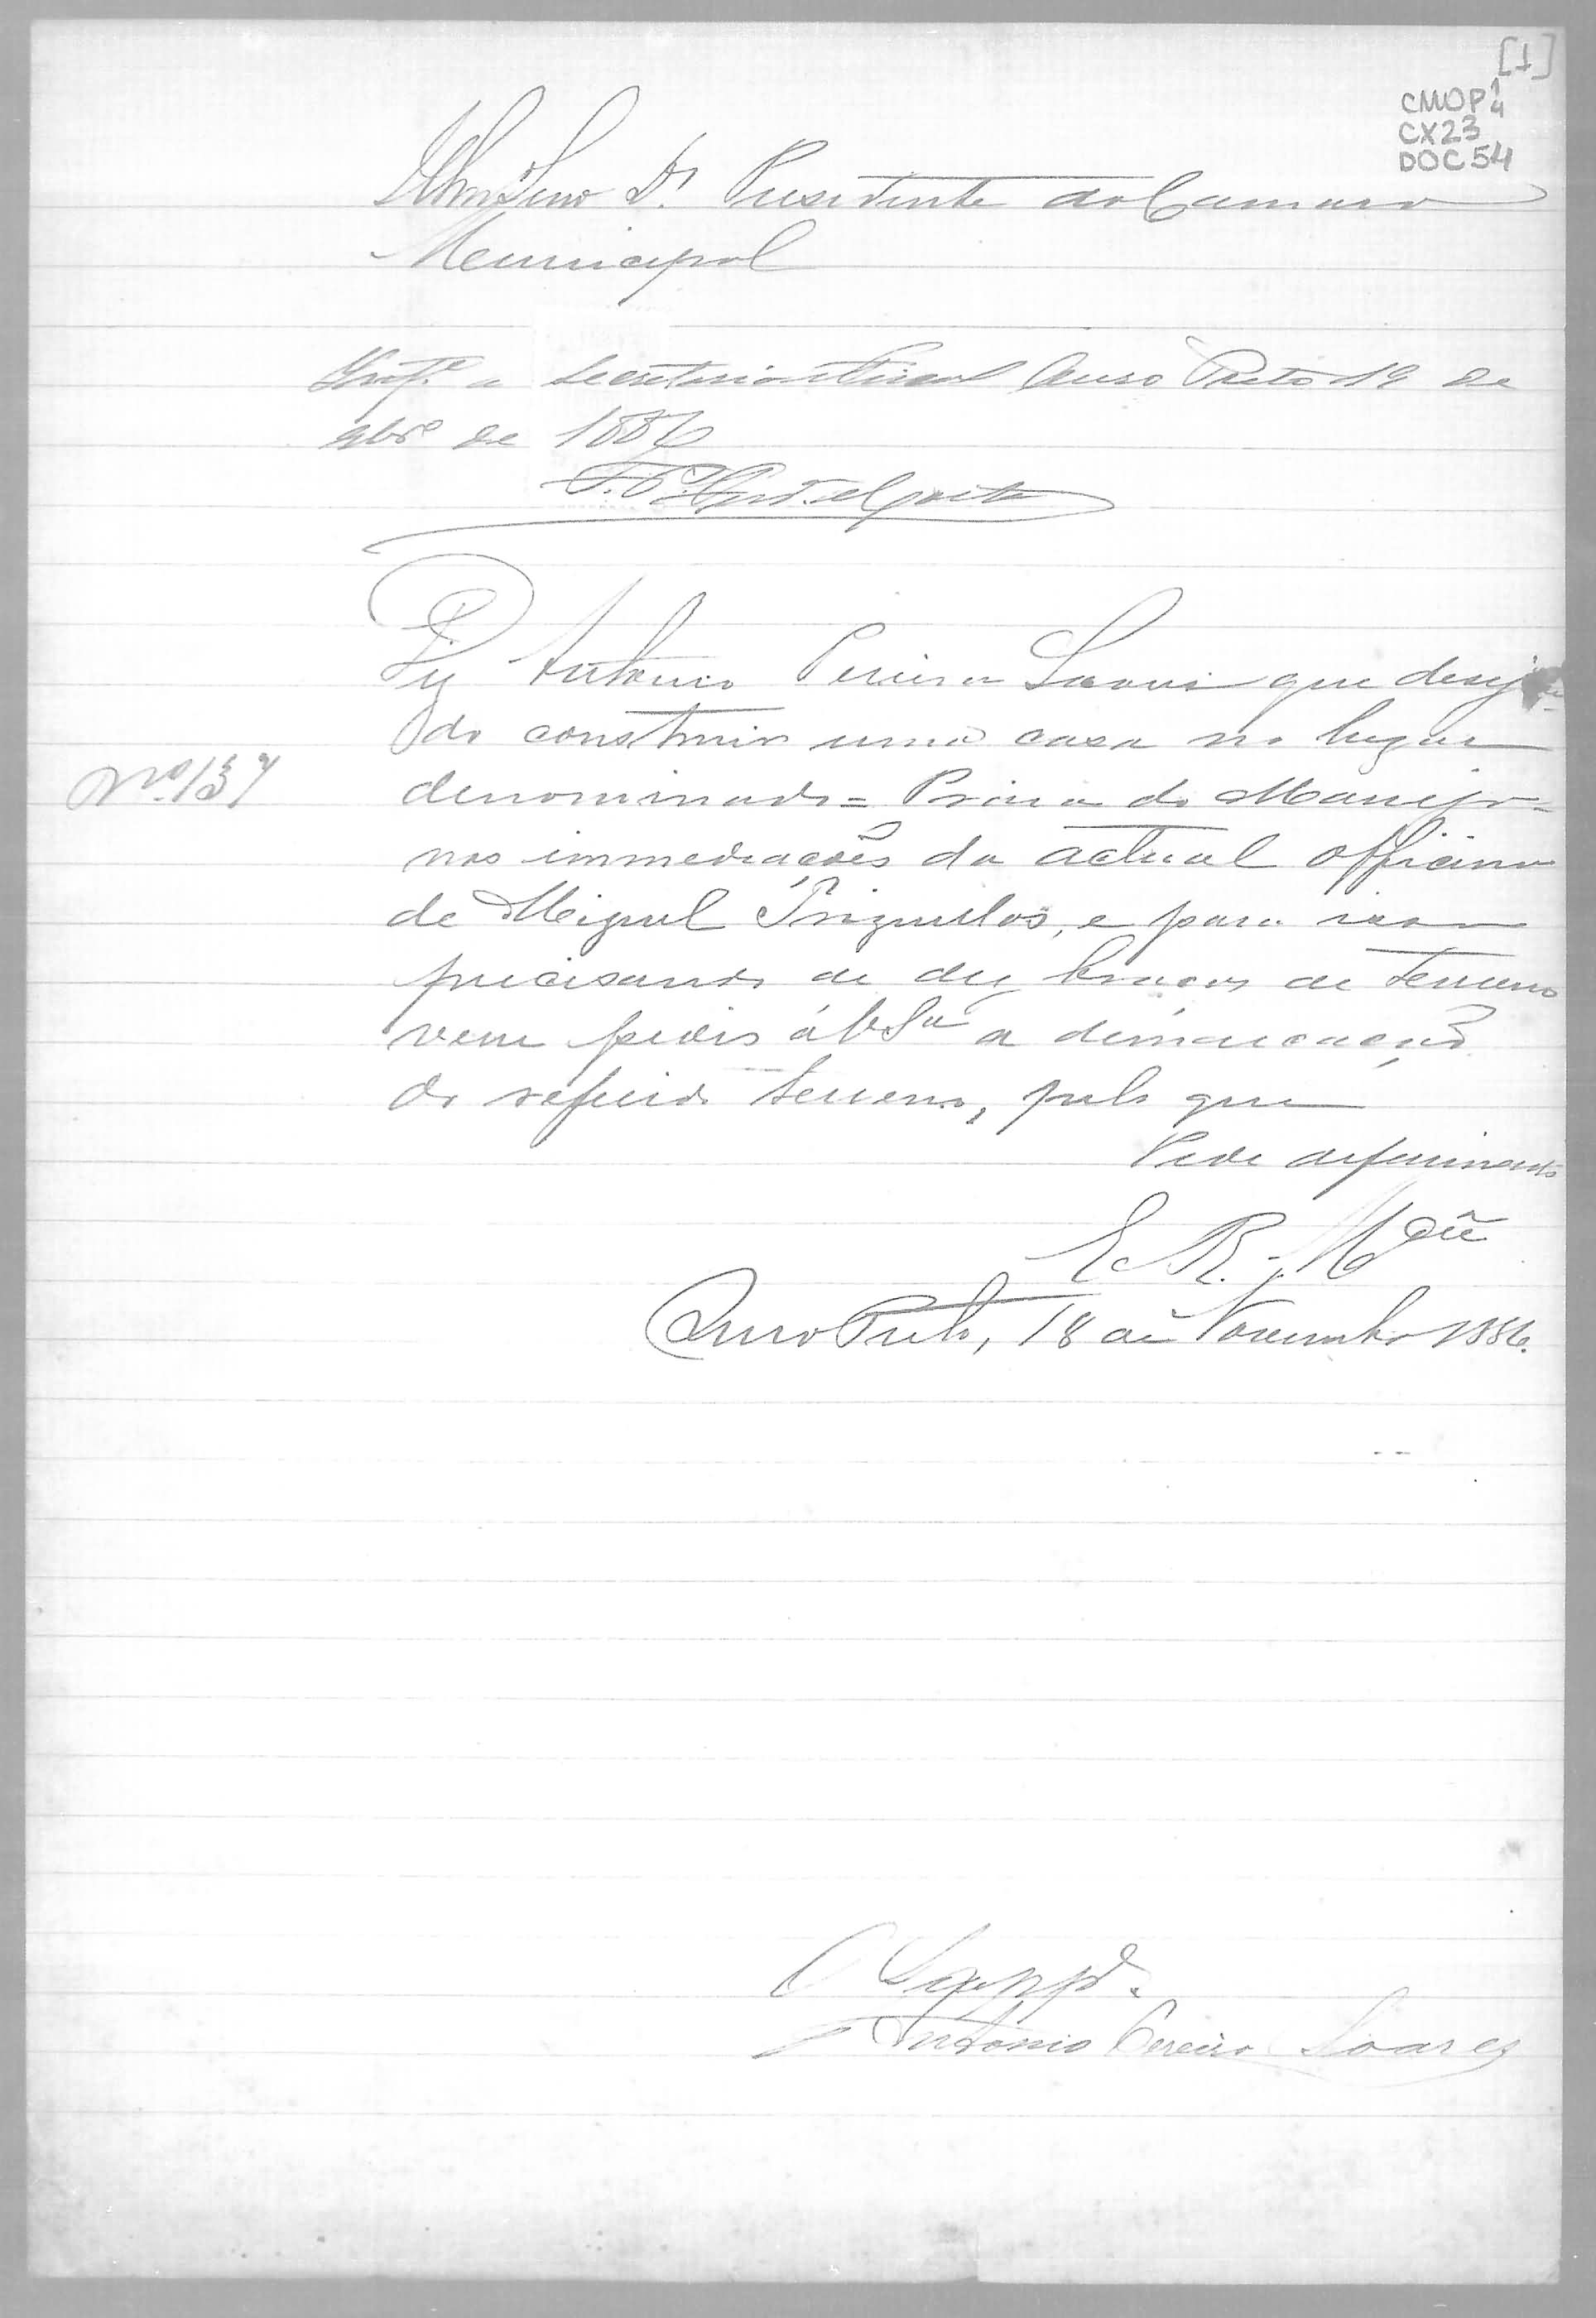 [1]
CMOP 1/4
CX23
DOC 54
Illmo Snro Dr. Presidente da Camara
Municipal
Infe. o Secretario Fiscal Ouro Preto 19 de
9bro de 1886
Diz Antonio Pereira Soares que desejan-
do construir uma casa no lugar
Nº 137
denominado = Praia do Manejo =
nas immediações da actual officina
de Miguel Triguellos, e para isso
precisando de dez braças de terreno
vem pedir á V. Sa a demarcação
do referido terreno, pelo que
Pede deferimento
E. R. Mcê
Ouro Preto, 18 de Novembro 1886.
O Suppe.
Antonio Pereira Soares